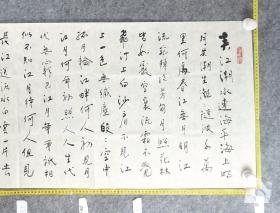 春江潮水連海平海上明
月共潮生灩灩隨波千萬
里何處春江無月明江
流宛轉繞芳甸月照花林
皆似霰空里流霜不覺
飛汀上白沙看不見江
天一色無纖塵皎皎空中
孤月輪江畔何人初見月
江月何年初照人人生代
代無窮已江月年年望相
似不知江月待何人但見
長江送流水白雲一片去